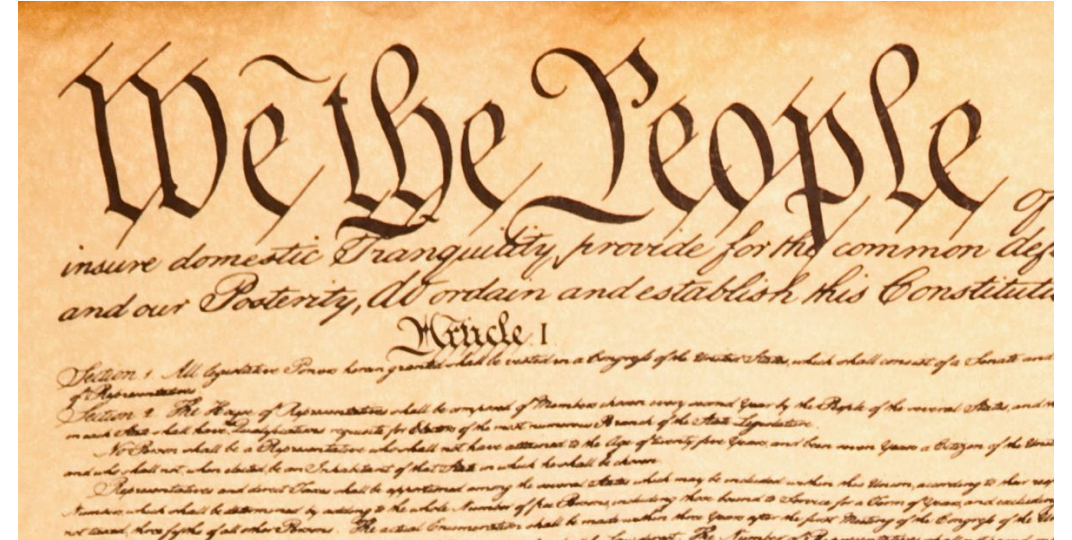 We the People of
insure domestic Tranquility, provide for the common def
and our Posterity, do ordain and establish this Constituti
Article I.
Section 1. All legislative Powers herein granted shall be vested in a Congress of the United States, which shall consist of a Senate and
of Representatives.
Section 2. The House of Representatives shall be composed of Members chosen every second Year by the People of the several States, and
in each State shall have the Qualifications requisite for Electors of the most numerous Branch of the State Legislature.
No Person shall be a Representative who shall not have attained to the Age of twenty five Years, and been seven Years a Citizen of the Unit
and who shall not, when elected, be an Inhabitant of that State in which he shall be chosen.
Representatives and direct Taxes shall be apportioned among the several States which may be included within this Union, according to their resp
Numbers, which shall be determined by adding to the whole Number of free Persons, including those bound to Service for a Term of Years, and excluding
not taxed, three fifths of all other Persons. The actual Enumeration shall be made within three Years after the first Meeting of the Congress of the U
The Number of Representatives shall